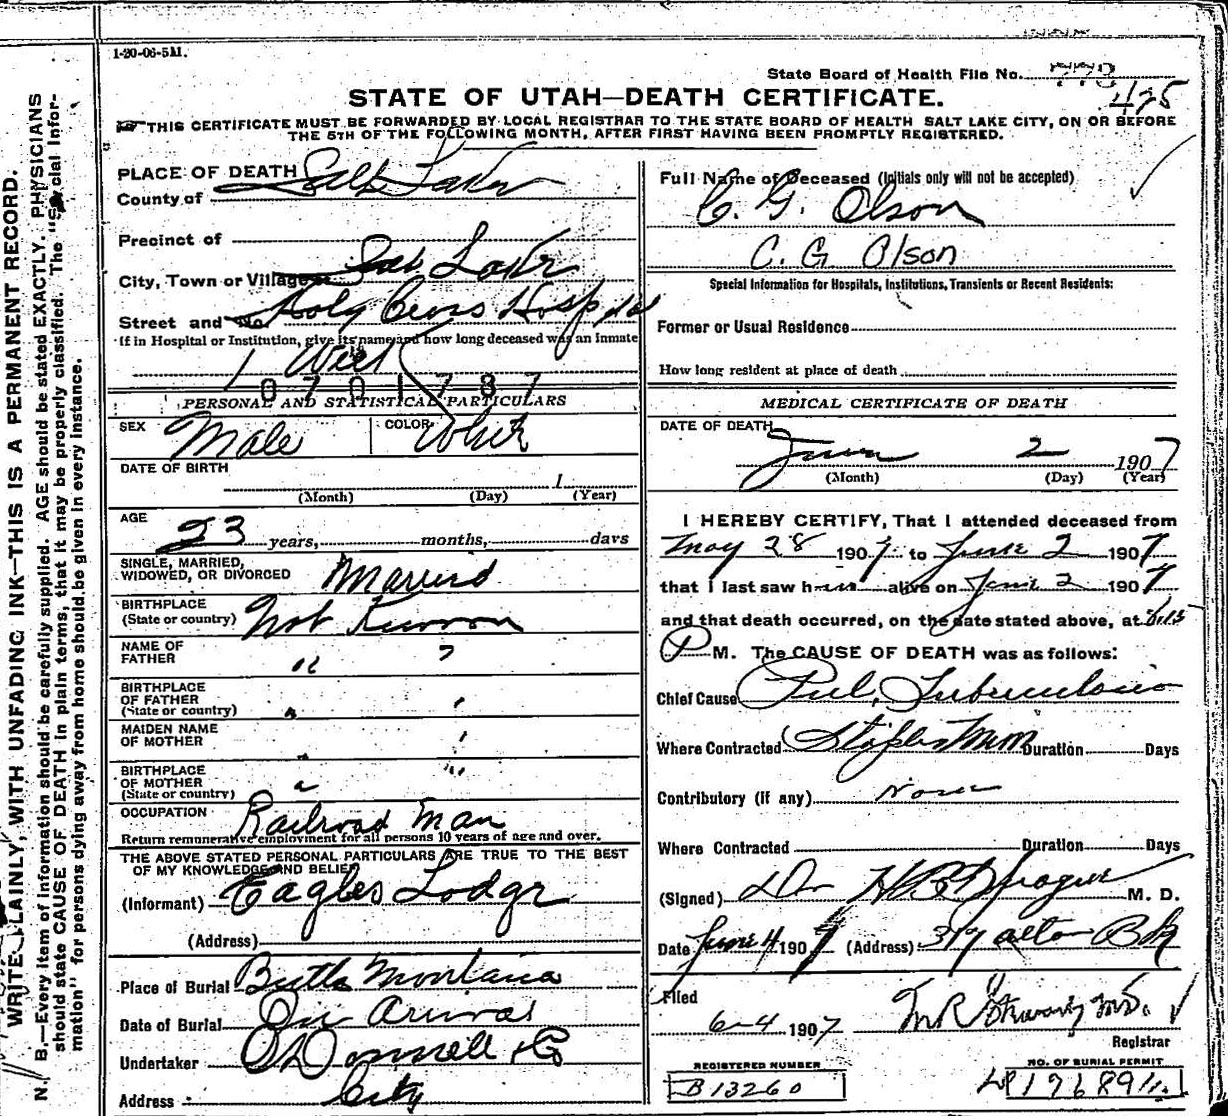 1-20-06-5M.
State Board of Health File No.
425
STATE OF UTAH—DEATH CERTIFICATE.
THIS CERTIFICATE MUST BE FORWARDED BY LOCAL REGISTRAR TO THE STATE BOARD OF HEALTH SALT LAKE CITY, ON OR BEFORE
THE 5TH OF THE FOLLOWING MONTH, AFTER FIRST HAVING BEEN PROMPTLY REGISTERED.
WRITE PLAINLY, WITH UNFADING INK—THIS IS A PERMANENT RECORD.
N. B.—Every item of information should be carefully supplied. AGE should be stated EXACTLY. PHYSICIANS
should state CAUSE OF DEATH in plain terms, that it may be properly classified. The "Special Infor-
mation" for persons dying away from home should be given in every instance.
PLACE OF DEATH
County of Salt Lake
Precinct of
City, Town or Village Salt Lake
Street and No. Holy Cross Hospital
If in Hospital or Institution, give its name and how long deceased was an inmate
1 Week
0701787
PERSONAL AND STATISTICAL PARTICULARS
SEX Male COLOR White
DATE OF BIRTH
1
(Month) (Day) (Year)
AGE
23 years, months, days
SINGLE, MARRIED,
WIDOWED, OR DIVORCED Married
BIRTHPLACE
(State or country) Not Known
NAME OF
FATHER " ?
BIRTHPLACE
OF FATHER
(State or country)
MAIDEN NAME
OF MOTHER
BIRTHPLACE
OF MOTHER
(State or country)
OCCUPATION Railroad Man
Return remunerative employment for all persons 10 years of age and over.
THE ABOVE STATED PERSONAL PARTICULARS ARE TRUE TO THE BEST
OF MY KNOWLEDGE AND BELIEF
(Informant) Eagles Lodge
(Address)
Place of Burial Butte Montana
Date of Burial On Arrival
Undertaker O'Donnell & Co
Address City
Full Name of Deceased (Initials only will not be accepted)
C. G. Olson
C. G. Olson
Special Information for Hospitals, Institutions, Transients or Recent Residents:
Former or Usual Residence
How long resident at place of death
MEDICAL CERTIFICATE OF DEATH
DATE OF DEATH
June 2 1907
(Month) (Day) (Year)
I HEREBY CERTIFY, That I attended deceased from
May 28 1907. to June 2 1907
that I last saw him alive on June 2 1907
and that death occurred, on the date stated above, at 6:15
P M. The CAUSE OF DEATH was as follows:
Chief Cause Pul. Tuberculosis
Where Contracted Duration Days
Contributory (if any) None
Where Contracted Duration Days
(Signed) Dr Sprague M. D.
Date June 4 1907 (Address) 317 Bk
Filed
6-4 1907 M.D.
Registrar
REGISTERED NUMBER
B13260
NO. OF BURIAL PERMIT